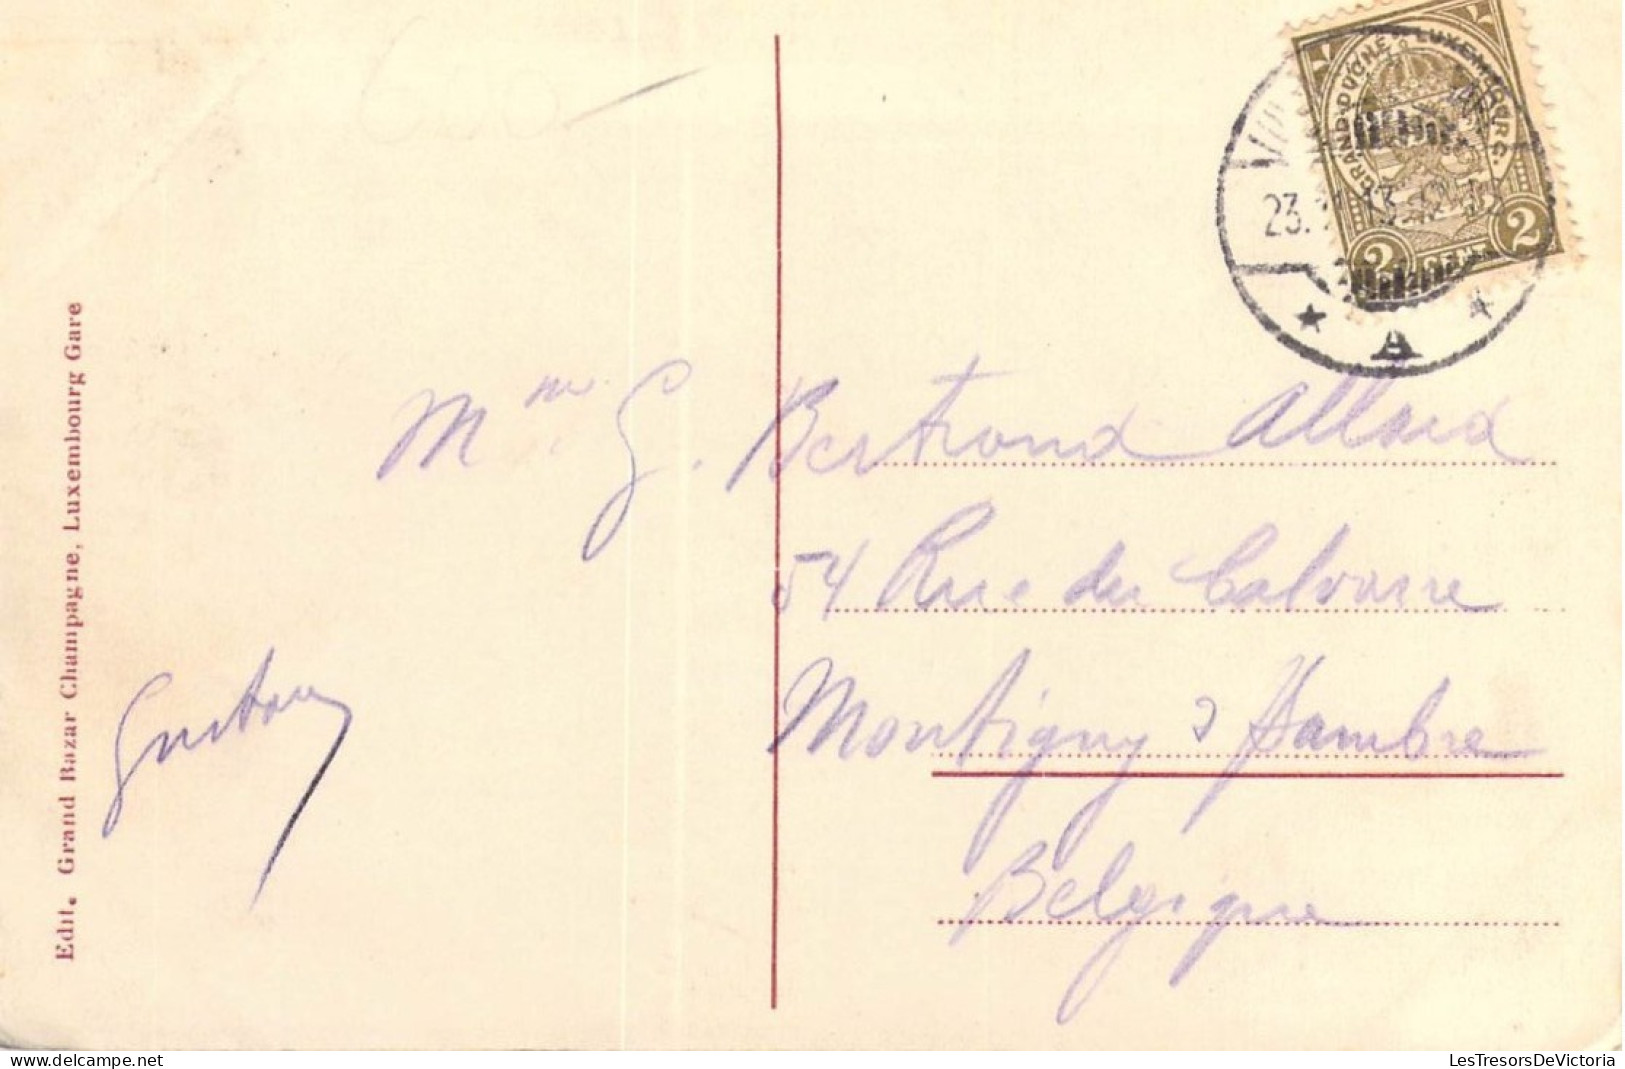 GRAND-DUCHÉ DE LUXEMBOURG.
2 CENT. 2
23.
A
Mme G. Bertrand Allard
54 Rue du Calvaire
Montigny s Sambre
Belgique
Gustave
Edit. Grand Bazar Champagne, Luxembourg Gare
delcampe.net
LesTresorsDeVictoria